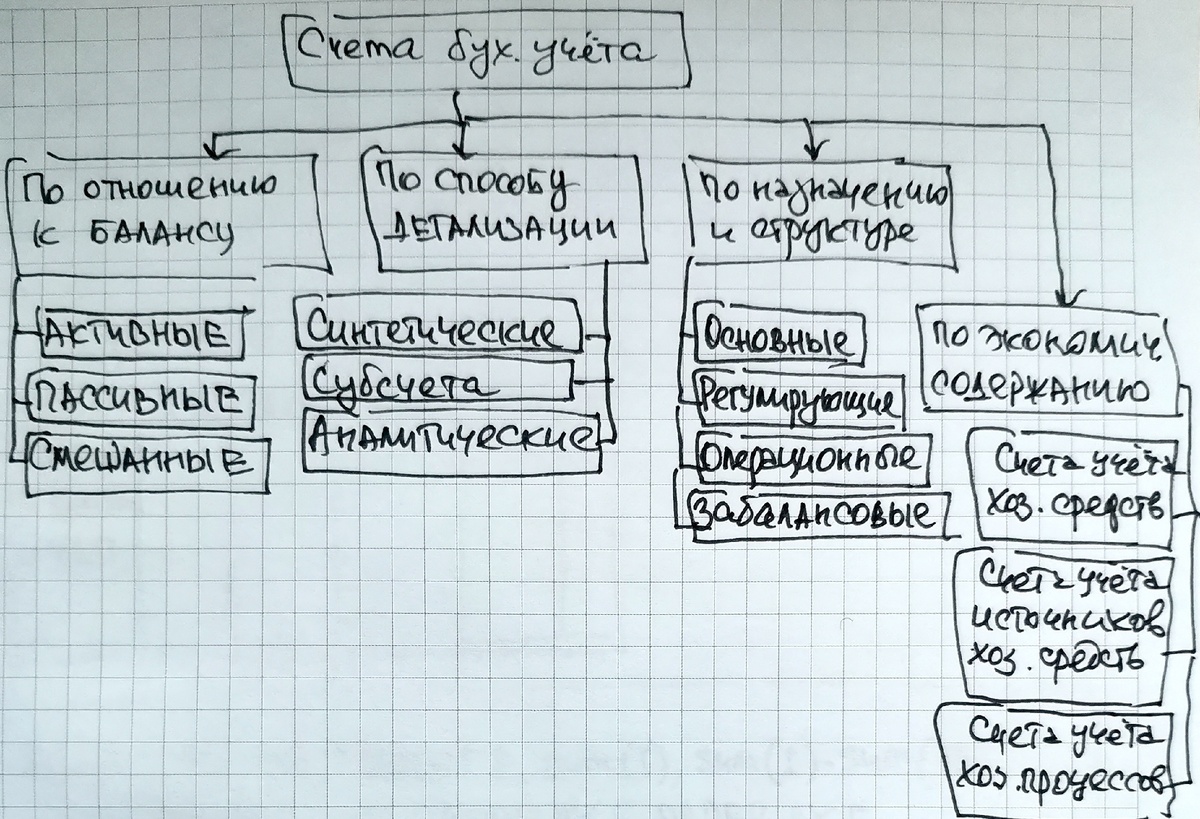 Счета бух. учёта
По отношению
к БАЛАНСУ
АКТИВНЫЕ
ПАССИВНЫЕ
СМЕШАННЫЕ
По способу
ДЕТАЛИЗАЦИИ
Синтетические
Субсчета
Аналитические
по назначению
и структуре
Основные
Регулирующие
Операционные
Забалансовые
по экономич
содержанию
Счета учёта
хоз. средств
Счета учёта
источников
хоз. средств
Счета учёта
хоз. процессов